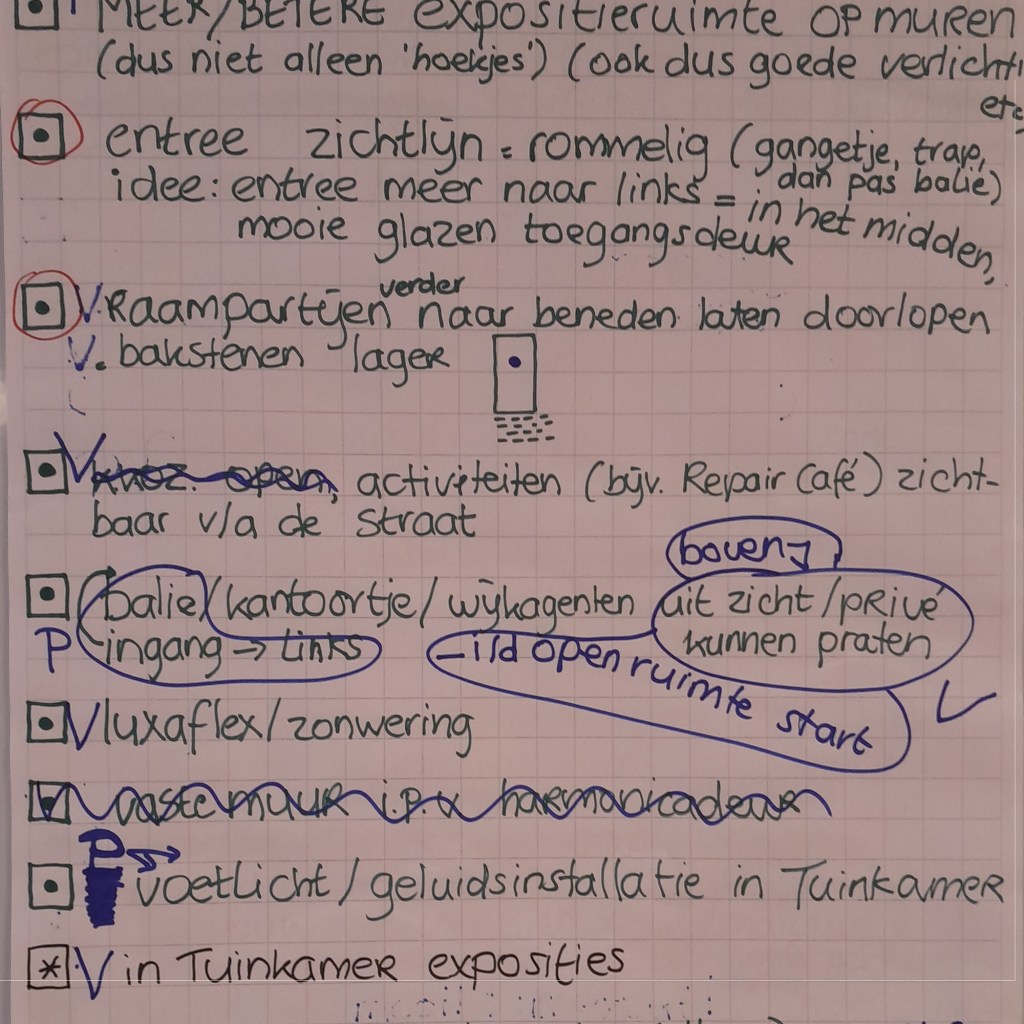 MEER/BETERE expositieruimte OP muren
(dus niet alleen 'hoekjes') (ook dus goede verlichti
etc
entree zichtlijn = rommelig (gangetje, trap,
dan pas balie)
idee: entree meer naar links = in het midden,
mooie glazen toegangsdeur
V Raampartijen verder naar beneden laten doorlopen
V. bakstenen lager
V activiteiten (bijv. Repair Café) zicht-
baar v/a de straat
boven
balie/kantoortje/wijkagenten uit zicht/privé
P ingang → links kunnen praten
- i/d open ruimte start V
V luxaflex/zonwering
vaste muur i.p.v. harmonicadeur
P →
voetlicht/geluidsinstallatie in Tuinkamer
* V in Tuinkamer exposities